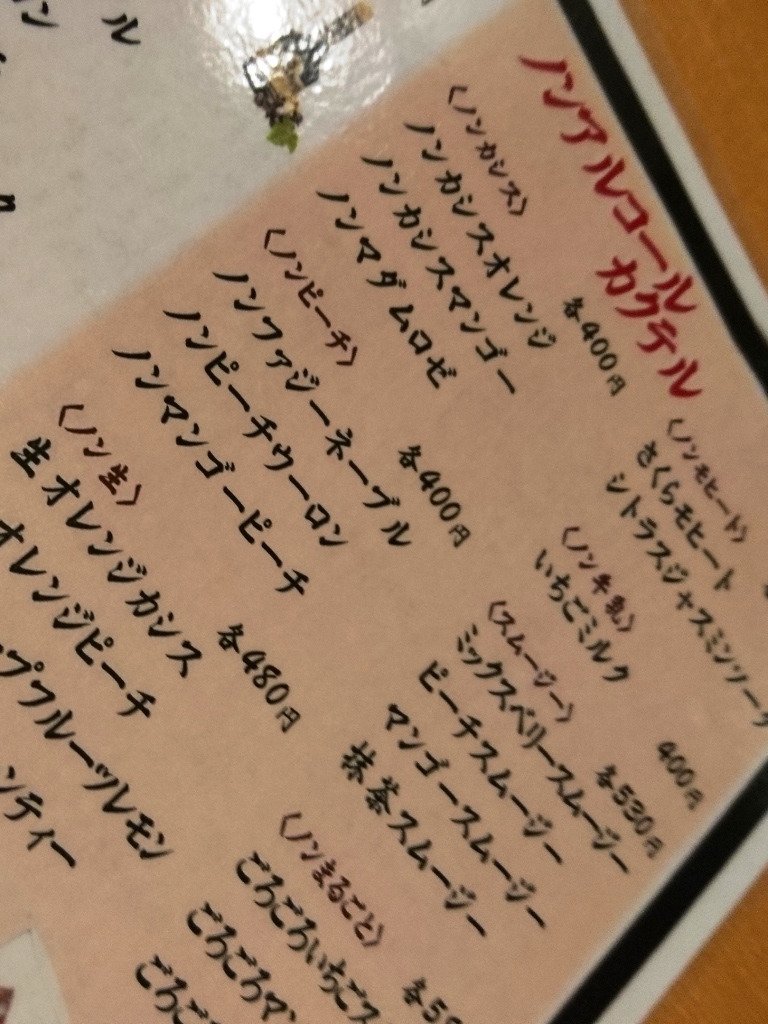 ノンアルコール
カクテル
〈ノンカシス〉
ノンカシスオレンジ
ノンカシスマンゴー
ノンマダムロゼ
各400円
〈ノンピーチ〉
ノンファジーネーブル
ノンピーチウーロン
ノンマンゴーピーチ
各400円
〈ノン生〉
生オレンジカシス
オレンジピーチ
プフルーツレモン
ンティー
各480円
〈ノンモヒート〉
さくらモヒート
シトラスジャスミンソーダ
〈ノン牛乳〉
いちごミルク
400円
〈スムージー〉
ミックスベリースムージー
ピーチスムージー
マンゴースムージー
抹茶スムージー
各530円
〈ノンまるごと〉
ごろごろいちごス
ごろごろマン
ごろご